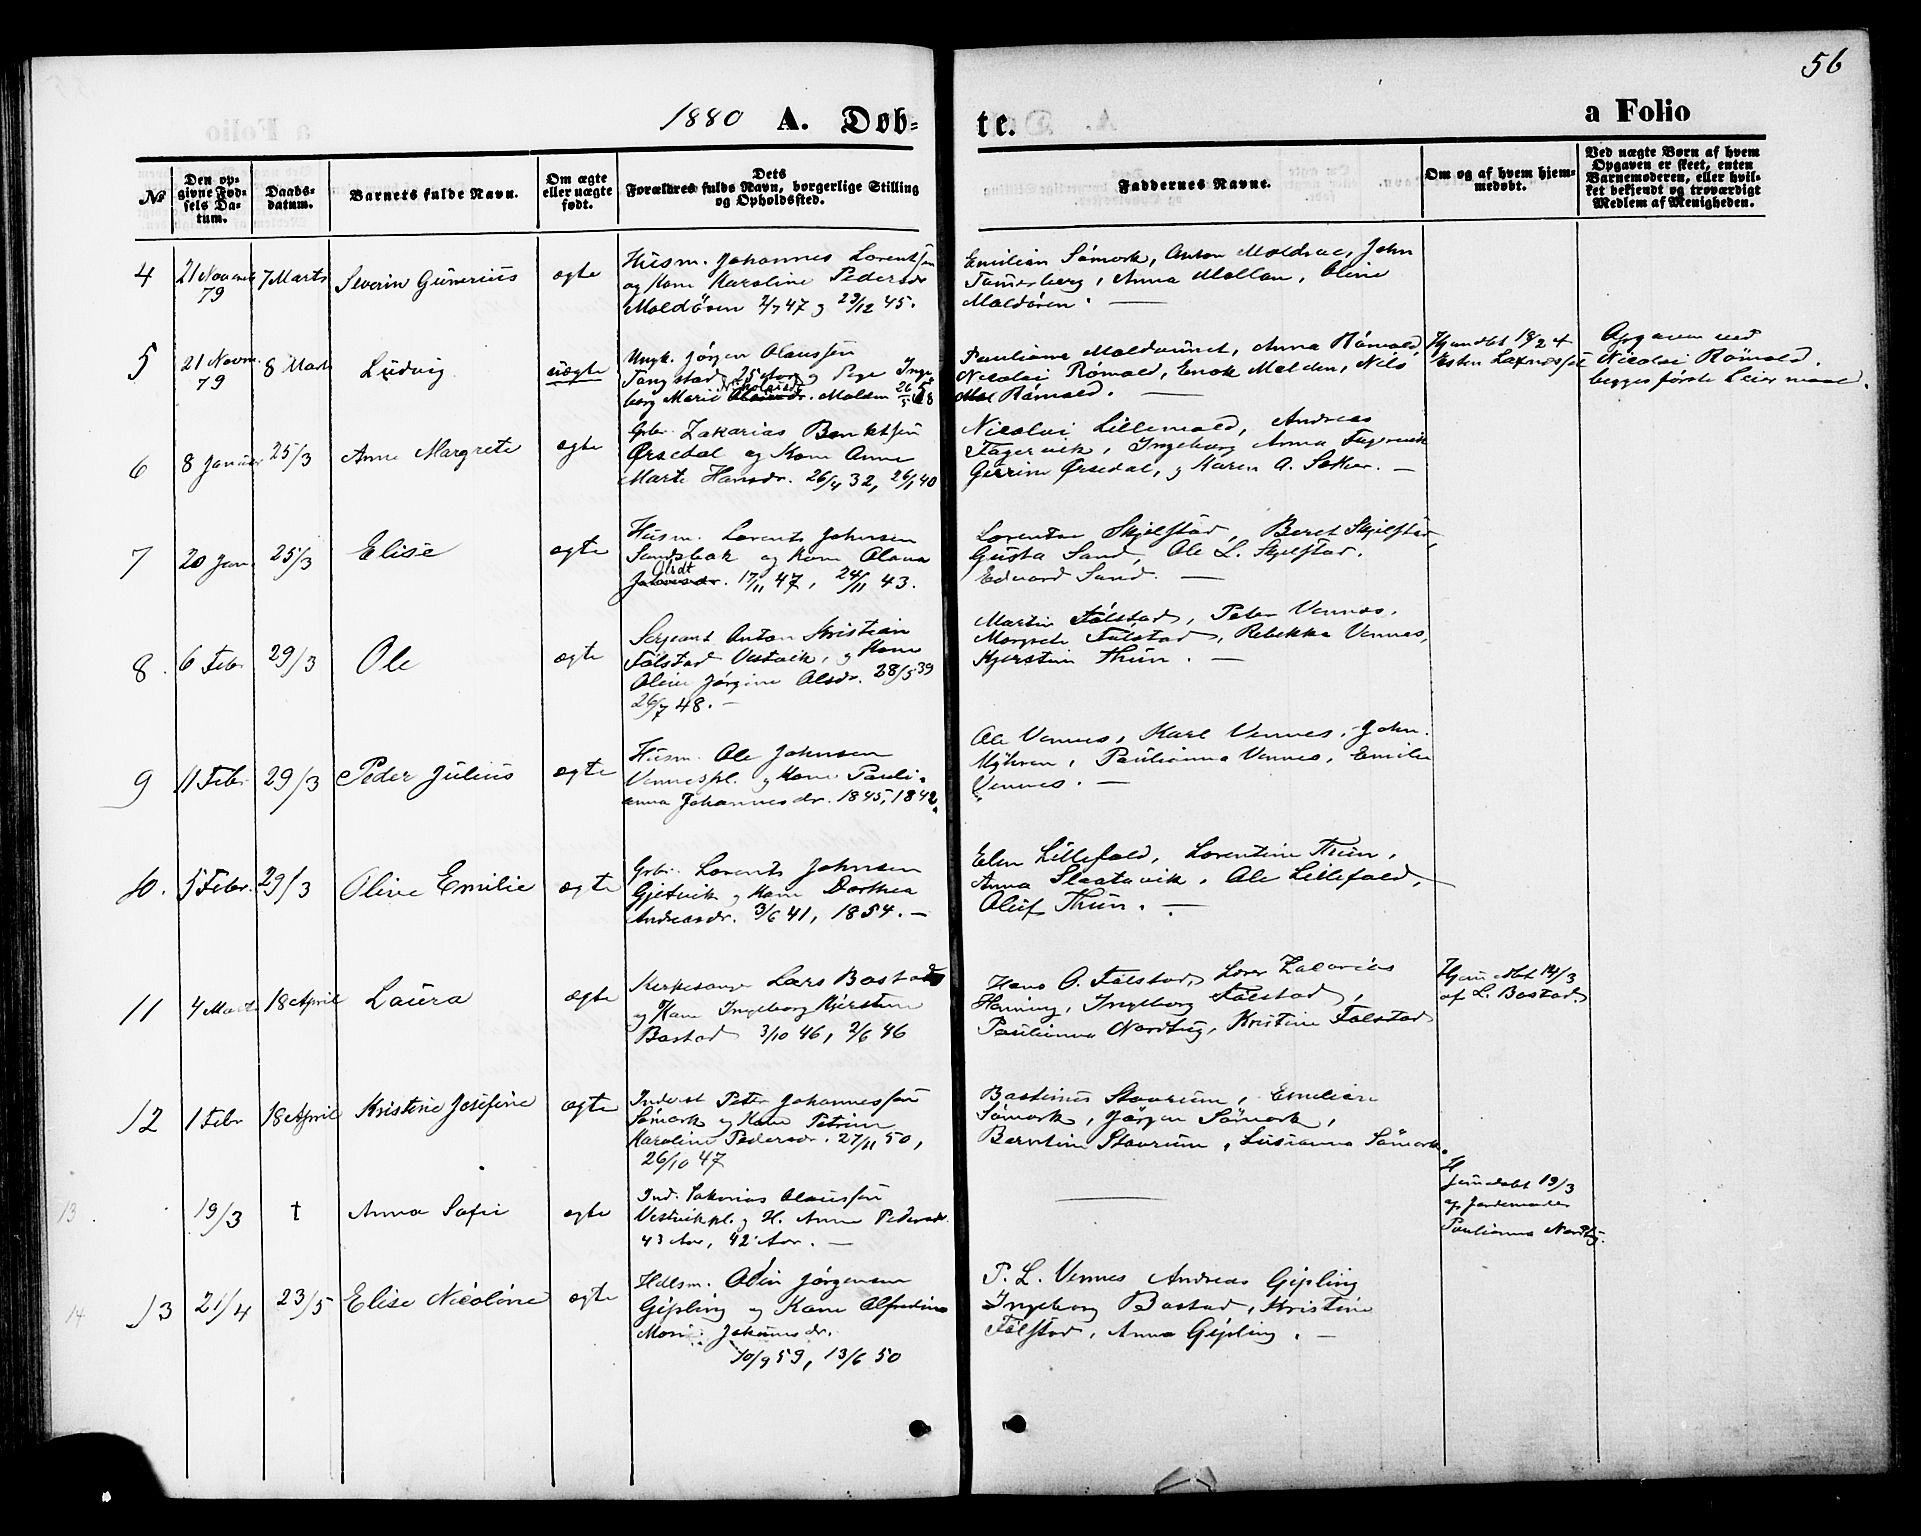 56
1880 A. Døb= te. a Folio
№ Den op-givne Fød-sels Da-tum. Daabs-datum. Barnets fulde Navn. Om ægte eller uægte født. Dets Forældres fulde Navn, borgerlige Stilling og Opholdssted. Faddernes Navne. Om og af hvem hjem-medøbt. Ved uægte Børn af hvem Opgaven er skeet, enten Barnemoderen, eller hvil-ket bekjendt og troværdigt Medlem af Menigheden.
4 21 Novemb 79 7 Marts Severin Gunerius ægte
Husm. Johannes Lorentsen
og Kone Karoline Pedersdr
Moldören 2/7 47 og 29/12 45.
Emilian Sömork, Anton Moldvae, John
Tunesberg, Anna Mollan, Oline
Moldören.
5 21 Novm. 79 8 Marts Ludvig uægte
Ungk. Jörgen Olaussen
Tangstad 25 Aar og Pige Inge
borg Marie Moldem 26/5 58
Pauliane Moldvunet, Anna Römold,
Nicolai Römold, Enok Molden, Nils
Römold.
Hjemdöbt 18/2
Opgaven ved
Nicolai Römold.
begges første Leiermaal.
6 8 Januar 25/3 Anne Margrete ægte
Grbr. Zakarias Bentsen
Ørsedal og Kone Anne
Marte Hansdr. 26/4 32, 26/1 40
Nicolai Lillemold, Andreas
Fagervik, Ingeborg Anna Fagervik
Ørsedal, og Maren A. Saker.
7 20 Jan. 25/3 Elise ægte
Husm. Lorents Johnsen
Sandsbak og Kone Olava
Olsdt
17/11 47, 24/11 43.
Lorentse Skjelstad, Beret Skjelstad,
Gusta Sand, Ole L. Skjelstad.
Edvard Sand.
8. 6 Febr 29/3 Ole ægte
Sergeant Anton Kristian
Folstad Vestvik, og Kone
Oline Jörgine Olsdr. 28/5 39
26/7 48.
Martin Folstad, Peter Vennes.
Margrete Folstad, Rebekka Vennes,
Kjerstin Thun.
9 11 Febr 29/3 Peder Julius ægte
Husm. Ole Johnsen
Vennespl. og Kone Pauli-
anna Johannesdr. 1845, 1842.
Ole Vennes, Karl Vennes, John
Myhren, Paulianna Vennes, Emilie
Vennes.
10. 5 Febr. 29/3 Oline Emilie ægte
Grbr. Lorents Johnsen
Gjetvik og Kone Dorthea
Andreasdr. 3/6 41, 1854.
Elen Lillefald, Lorentine Thun,
Anna Slaatavik, Ole Lillefald,
Oluf Thun.
11 4 Marts 18 April Laura ægte
Kirkesanger Lars Bastad
og Kone Ingeborg Kjerstine
Bastad 3/10 46, 2/6 46
Hans O. Folstad, Zakarias
Henning, Ingeborg Folstad,
Paulianna Nordbug, Kristine Folstad
Hjemdöbt 14/3
af L. Bastad
12 1 Febr 18 April Kristine Josefine ægte
Inderst Peter Johannessen
Sömork og Kone Petrine
Karoline Pedersdr. 27/11 50,
26/10 47
Bastinus Stavrum, Emilian
Sömork, Jörgen Sömork,
Berntine Stavrum, Lusianna Sömork.
13 19/3 † Anna Sofie ægte
Ind. Sakarias Olaussen
Vestvikpl. og H. Anne Pedersdr.
43 Aar, 42 Aar.
Hjemdöbt 19/3
af Jordemoder
Paulianna Nordbug.
14 13 21/4 23/5 Elise Nicoline ægte
Hdlsm. Odin Jörgensen
Gipling og Kone Alfredine
Johansdr.
10/9 59, 13/6 50
P. L. Vennes Andreas Gipling
Ingeborg Bastad, Kristine
Folstad, Anna Gipling.